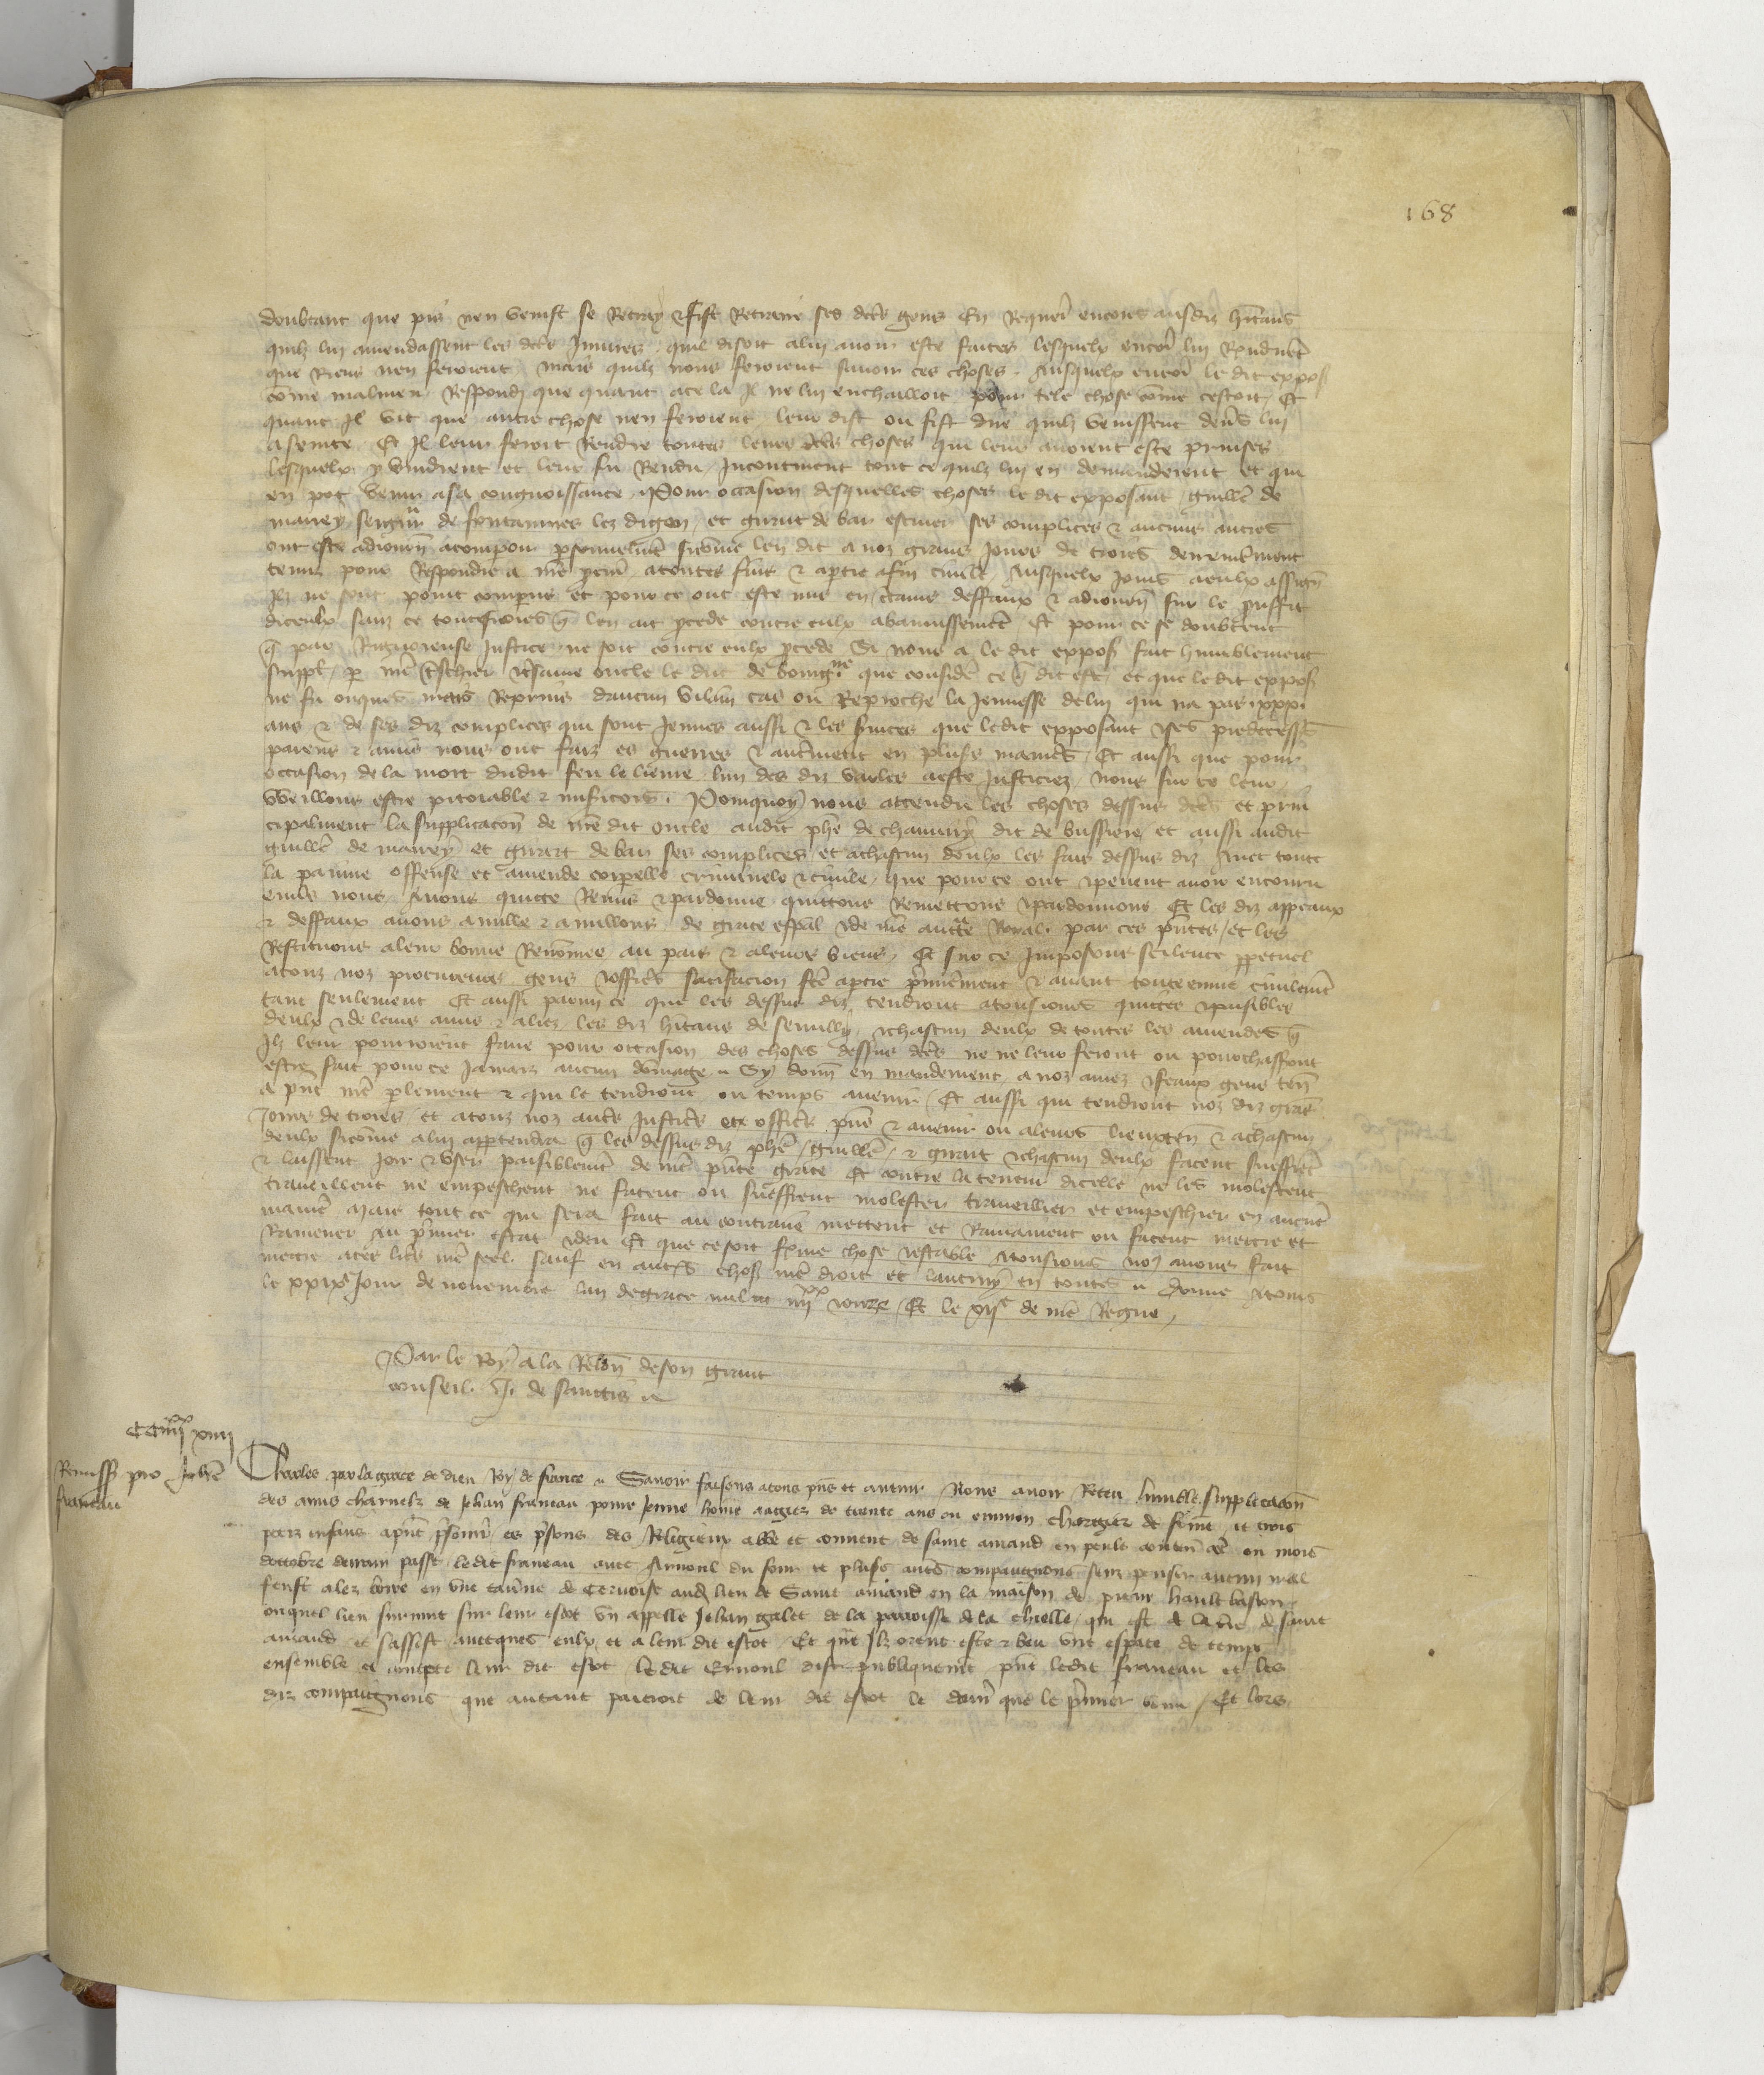 168
doubtant que pis nen venist se Retray & fist Retraire ses dictes gens En Requer encores ausdiz hitans
quilz lui amendassent les dictes Iniures quil disoit a lui avoir este faites lesquelx encor lui Rondirent
que Riens nen feroient / mais quilz nous feroient savoir ces choses . Ausquelx encor le dit expos
come malmeu Respondi que quant ace la Il ne lui enchailloit pour tele chose come cestoit / Et
quant Il vit que autre chose nen feroient leur dist ou fist dire quilz venissent devs lui
a seurte Et Il leur feroit Rendre toutes leurs choses qui leur avoient este prinses
lesquelx y vindrent et leur fu Rendu / Incontinent tout ce quilz lui en demanderent et qui
en pot venir a sa congnoissance . Pour occasion desquelles choses le dit exposant / Guille de
marey seigneur de fontainnes lez digon / et girart de bar escuiers ses complices & aucuns autres
ont este adiourn a comparoir personelmt sicome len dit a noz grans Jours de troies derrenierement
tenuz pour Respondre a nre procur a toutes fins & a partie a fin civile / Ausquelx Jours a eulx assign
Ilz ne sont point comparus et pour ce ont este mis en deffaux & adiourn sur le prouffit
diceulx sanz ce toutesvoies q len ait procede contre eulx a bannissement Et pour ce se doubtent
q par Rigoreuse Justice ne soit contre eulx procede Si nous a le dit expos fait humblement
suppl / par nre treschier & tresame oncle le duc de bourgne que consider ce q dit est / et que le dit expos
ne fu onques mais Reprins daucun vilain cas ou Reproche la Jeunesse de lui qui na pas xxxi
ans & de ses diz complices qui sont Jeunes aussi & les services que ledit exposant & ses predecesss
parens & amis nous ont faiz es guerres & autrement en pluss manieres / Et aussi que pour
occasion de la mort dudit feu le lieure lun des diz varles a este Justiciez / nous sur ce leur
vueillons estre pitoiable & misericors . Pourquoy nous attendu les choses dessus dictes et prin
cipalment la supplicacon de nre dit oncle audit phe de chauvirey dit de bussieres et aussi audit
guille de marrey et girart de bar ses complices et a chascun deulx les fais dessus diz avec toute
la painne offense et amende corporelle criminele & civile / que pour ce ont & peuent avoir encouru
envers nous / Avons quicte Remis & pardonne quittons Remettons & pardonnons Et les diz appeaux
& deffaux avons anulle & anullons de grace espal & de nre auctte Royal par ces pntes / et les
Restituons a leur bonne Renommee au pais & a leurs biens / Et sur ce Imposons scilence perpetuel
a touz noz procureurs gens & officrs satisfacion fte a partie premierement & avant toute euvre civilemt
tant seulement Et aussi parmi ce que les dessus diz tendront a tousiours quittes & paisibles
deulx & de leurs amis & aliez les diz hitans de semilly & chascun deulx de toutes les amendes q
Ilz leur pourroient faire pour occasion des choses dessus dictes ne ne leur feront ou pourchasseront
estre fait pour ce Jamais aucun domage . Sy donn en mandement a noz amez & feaux gens ten
a pnt nre parlement & qui le tendront ou temps avenir / Et aussi qui tendront noz diz grans
Jours de troies / et a touz noz autrs Justicrs et officrs pns & avenir ou a leurs lieuxten & a chascun
deulx sicome a lui appartendra q les dessus diz phe / guille / & girart & chascun deulx facent sueffrent
& laissent Joir & user paisiblement de nre pnte grace Et contre la teneur dicelle ne les molestent
traveillent ne empeschent ne facent ou sueffrent molester traveillier et empeschier en aucune
maniere Mais tout ce qui sera fait au contraire mettent et Ramainent ou facent mettre et
Ramener au premier estat & deu Et que ce soit ferme chose & estable a tousiours noz avons fait
mettre a ces lres nre seel . sauf en autrs choses nre droit et lautruy en toutes . Donne a Tours
le xxixe Jour de novembre lan de grace mil ccc iiiixx & onze / Et le xiie de nre Regne /
Par le Roy a la Relon de son grant
conseil . J. de sanctis
CCiiiixx xiiii
Remiss pro Johe
franeau
Charles par la grace de dieu Roy de france . Savoir faisons a tous pns et avenir . Nous avoir Receu humble supplicacon
des amis charnelz de Jehan franeau povre Jeune home aagiez de trente ans ou environ chargier de feme et trois
petiz enfans a pnt prisonnier es prisons des Religieux abbe et convent de saint amand en peule conten que ou mois
doctobre derrain passe ledit franeau avec Arnoul du four et pluss autrs compaignons sanz penser aucun mal
feust alez boire en une taverne de cervoise aud lieu de Saint amand en la maison de pierre hault baston
ouquel lieu survint sur leur escot un appelle Jehan galet de la parroisse de la chielle / qui est de la tre de saint
amand et sassist avecques eulx et a leur dit escot / Et qnt Ilz orent este & beu une espace de temps
ensemble et compte leur dit escot le dit Ernoul dist publiquement pnt ledit franeau et les
diz compaignons que autant paieroit de leur dit escot le derrenier que le premier venu / Et lors